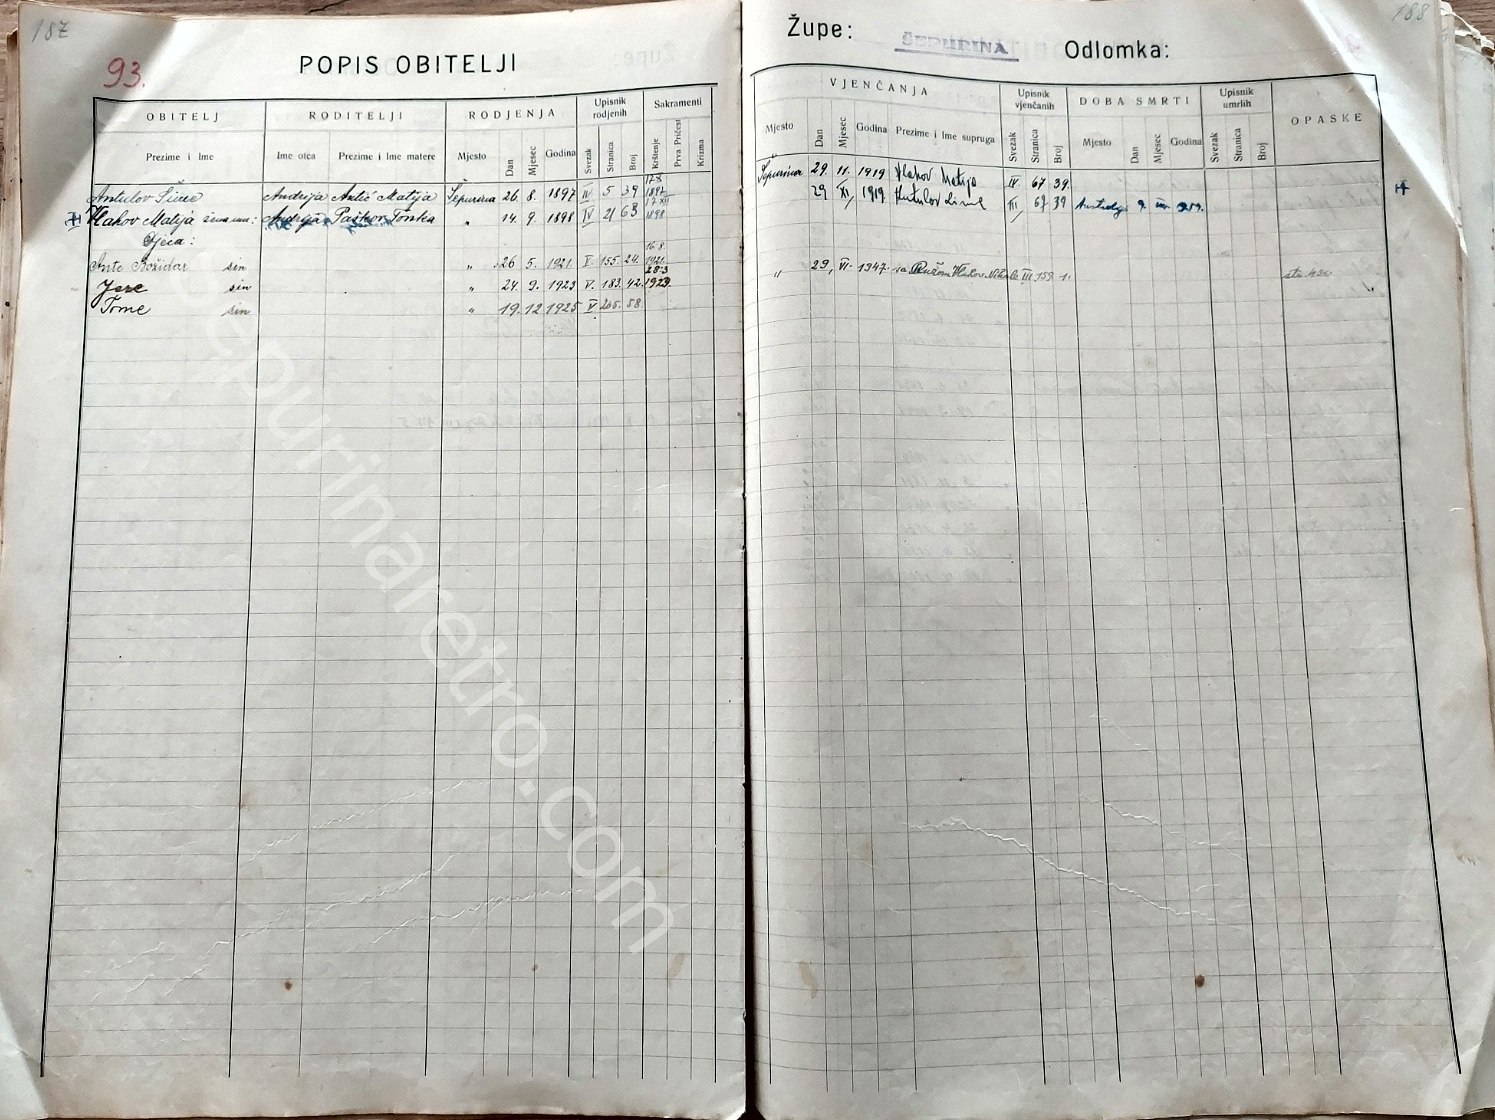 187
93.
POPIS OBITELJI
OBITELJ RODITELJI RODJENJA Upisnik rodjenih Sakramenti
Prezime i Ime Ime otca Prezime i Ime matere Mjesto Dan Mjesec Godina Svezak Stranica Broj Krštenje Prva Pričest Krizma
Antulov Šime Andrija Antić Matija Šepurina 26. 8. 1897 IV 5 39 1897
Vlahov Matija Andrija Paškov Tonka " 14. 9. 1898 IV 21 63 17 XII 1898
Djeca:
Ante Božidar sin " 26 5. 1921. V. 155. 24. 16.8. 1921.
Joze sin " 24. 9. 1923 V. 183. 42. 28.3 1929
Tome sin " 19. 12 1925 V 205. 58.
188
Župe: ŠEPURINA Odlomka:
VJENČANJA Upisnik vjenčanih DOBA SMRTI Upisnik umrlih OPASKE
Mjesto Dan Mjesec Godina Prezime i Ime supruga Svezak Stranica Broj Mjesto Dan Mjesec Godina Svezak Stranica Broj
Šepurina 29. 11. 1919 Vlahov Matija IV 67 39.
29 XI 1919. Antulov Šime III 67 39
" 29, VI. 1947. sa Ružom Vlahov Nikole III 159. 1.
sepurinaretro.com